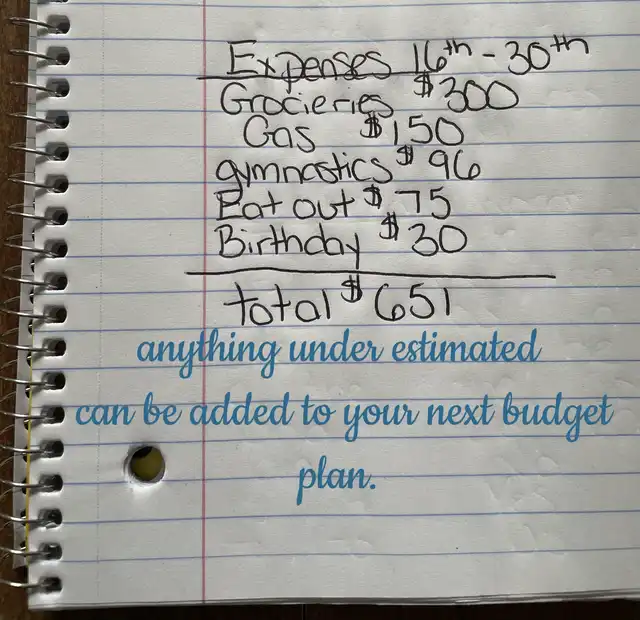 Expenses 16th - 30th
Grocieries $300
Gas $150
gymnastics $96
Eat out $75
Birthday $30
total $651
anything under estimated
can be added to your next budget
plan.